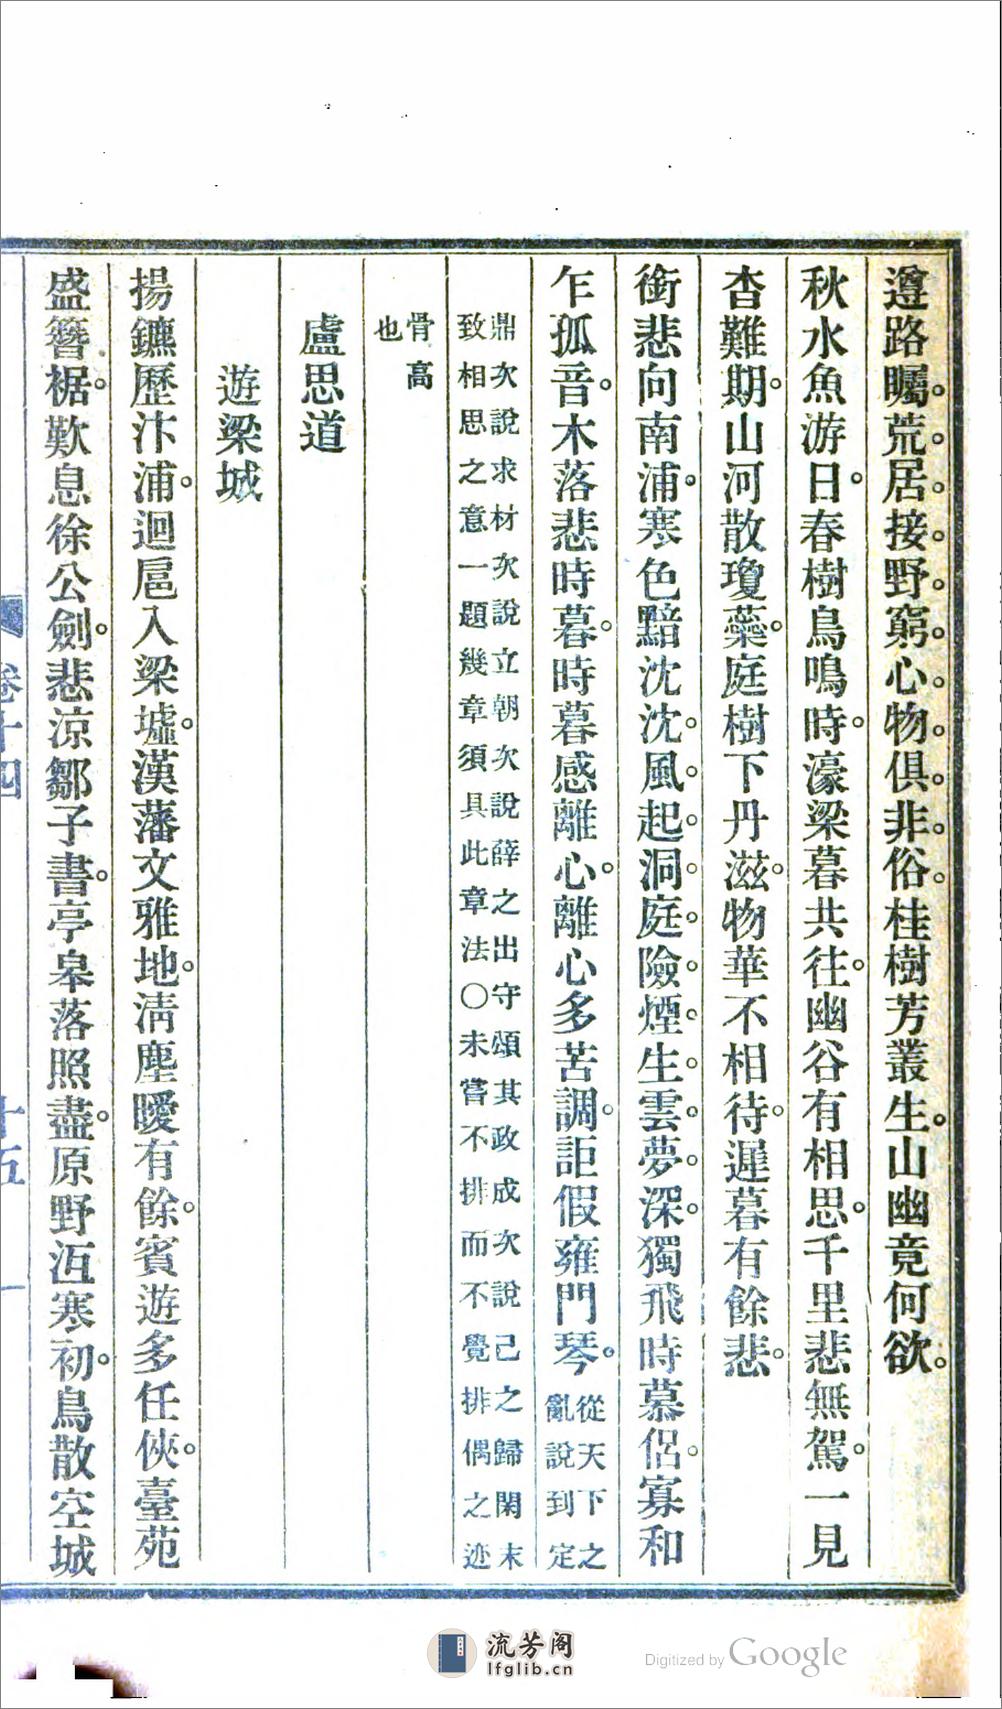 遵路矚。荒。居。接。野。窮。心。物。俱。非。俗。桂樹芳叢生。山幽竟何欲。
秋水魚游日。春樹鳥鳴時。濠梁暮共往。幽谷有相思。千里悲無駕。一見
杳難期。山河散瓊蘂。庭樹下丹滋。物華不相待。遲暮有餘悲。
銜悲向南浦。寒色黯沈沈。風。起。洞。庭。險。煙。生。雲。夢。深。獨飛時慕侶。寡和
乍孤音。木落悲時暮。時暮感離心。離心多苦調。詎假雍門琴。從天下之
亂說到定
鼎次說求材次說立朝次說薛之出守頌其政成次說己之歸閑末
致相思之意一題幾章須具此章法○未嘗不排而不覺排偶之迹
骨高
也
盧思道
遊梁城
揚鑣歷汴浦。迴扈入梁墟。漢藩文雅地。清塵曖有餘。賓遊多任俠。臺苑
盛簪裾。歎息徐公劍。悲涼鄒子書。亭皋落照盡。原野沍寒初。鳥散空城
卷十四
十五
流芳阁
lfglib.cn
Digitized by Google